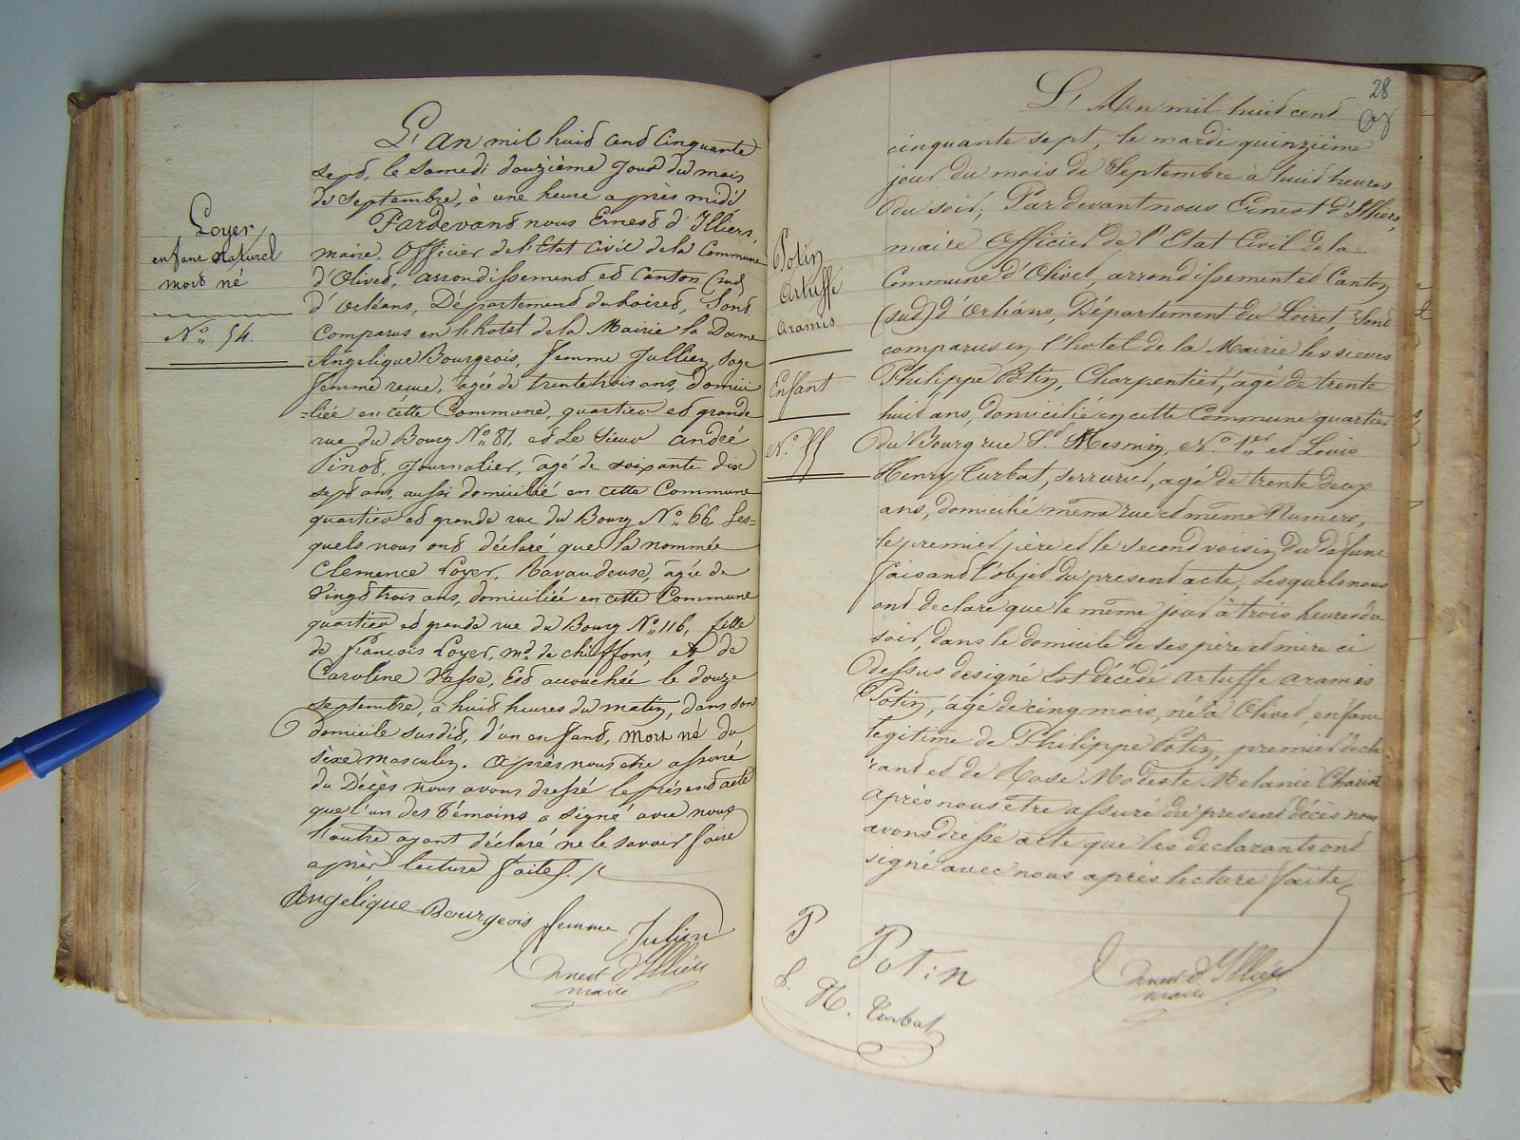 Loyer
enfant naturel
mort né
N° 54.
L'An mil huit cent Cinquante
sept, le Samedi douzième jour du mois
de Septembre, à une heure après midi
Pardevant nous Ernest d'Illiers,
maire, Officier de l'Etat Civil de la Commune
d'Olivet, arrondissement et Canton (sud)
d'Orléans, Département du Loiret, Sont
Comparus en l'hôtel de la Mairie la Dame
Angélique Bourgeois, femme Jullien, sage
femme reçue, âgée de trente trois ans, domici
=liée en cette Commune, quartier et grande
rue du Bourg N° 81. et Le Sieur andré
Pinot, Journalier, âgé de soixante dix
sept ans, aussi domicilié en cette Commune
quartier et grande rue du Bourg N° 66. Les=
quels nous ont déclaré que la nommée
Clemence Loyer, Ravaudeuse, âgée de
Vingt trois ans, domiciliée en cette Commune
quartier et grande rue du Bourg N° 116, fille
de françois Loyer, md. de chiffons, et de
Caroline Vasse, Est accouchée le douze
septembre, à huit heures du matin, dans son
domicile susdit, d'un enfant, mort né du
sexe masculin. Après nous être assuré
du Décès nous avons dressé le présent acte
que l'un des témoins a signé avec nous
l'autre ayant déclaré ne le savoir faire
après lecture faite.
Angélique Bourgeois femme Julien
Ernest d'Illiers
maire
28
Potin
Artuffe
aramis
Enfant
N° 55
L'An mil huit cent
cinquante sept, le mardi quinzième
jour du mois de Septembre à huit heures
du soir, Pardevant nous Ernest d'Illiers,
maire Officier de l'Etat Civil de la
Commune d'Olivet, arrondissement et Canton
(sud) d'Orléans, Département du Loiret, Sont
comparus en l'hotel de la Mairie les sieurs
Philippe Potin, Charpentier, âgé de trente
huit ans, domicilié en cette Commune quartier
du Bourg rue St. Mesmin, N° 1er et Louis
Henry Turbat, serrurier, agé de trente deux
ans, domicilié même rue et même Numero,
le premier père et le second voisin du défunt
faisant l'objet du present acte, Lesquels nous
ont declaré que le même jour à trois heures du
soir, dans le domicile de ses père et mère ci
dessus designé Est décédé artuffe aramis
Potin, âgé de cinq mois, né à Olivet, enfant
legitime de Philippe Potin, premier décla
rant et de Rose Modeste Melanie
après nous etre assuré du present décès nous
avons dressé acte que les declarants ont
signé avec nous après lecture faite
P Potin
L. H. Turbat
Ernest d'Illiers
maire